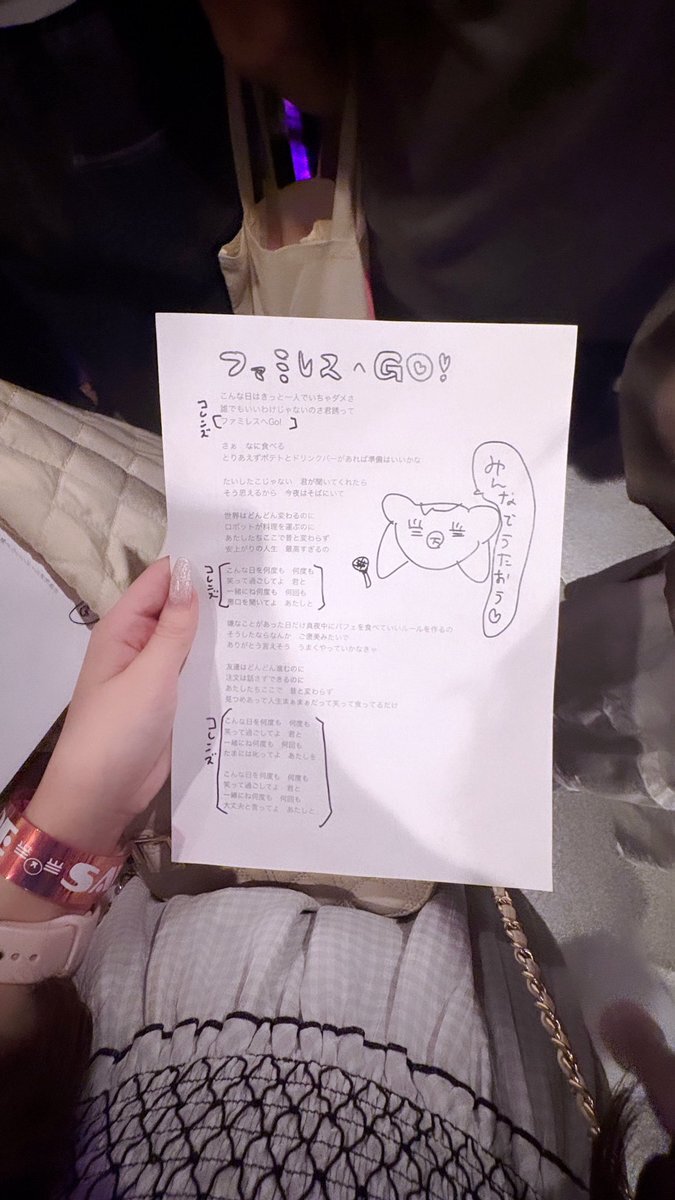 ファミレスへGO!
こんな日はきっと一人でいちゃダメさ
誰でもいいわけじゃないのさ君誘って
コレンズ
ファミレスへGo!
さぁ なに食べる
とりあえずポテトとドリンクバーがあれば準備はいいかな
たいしたこじゃない 君が聞いてくれたら
そう思えるから 今夜はそばにいて
世界はどんどん変わるのに
ロボットが料理を運ぶのに
あたしたちここで昔と変わらず
安上がりの人生 最高すぎるの
コレンズ
こんな日を何度も 何度も
笑って過ごしてよ 君と
一緒にね何度も 何回も
悪口を聞いてよ あたしと
嫌なことがあった日だけ真夜中にパフェを食べていいルールを作るの
そうしたならなんか ご褒美みたいで
ありがとう言えそう うまくやっていかなきゃ
友達はどんどん進むのに
注文は話さずできるのに
あたしたちここで 昔と変わらず
見つめあって人生まぁまぁだって笑って食ってるだけ
コレンズ
こんな日を何度も 何度も
笑って過ごしてよ 君と
一緒にね何度も 何回も
たまには叱ってよ あたしを
こんな日を何度も 何度も
笑って過ごしてよ 君と
一緒にね何度も 何回も
大丈夫と言ってよ あたしと
みんなでうたおう♡